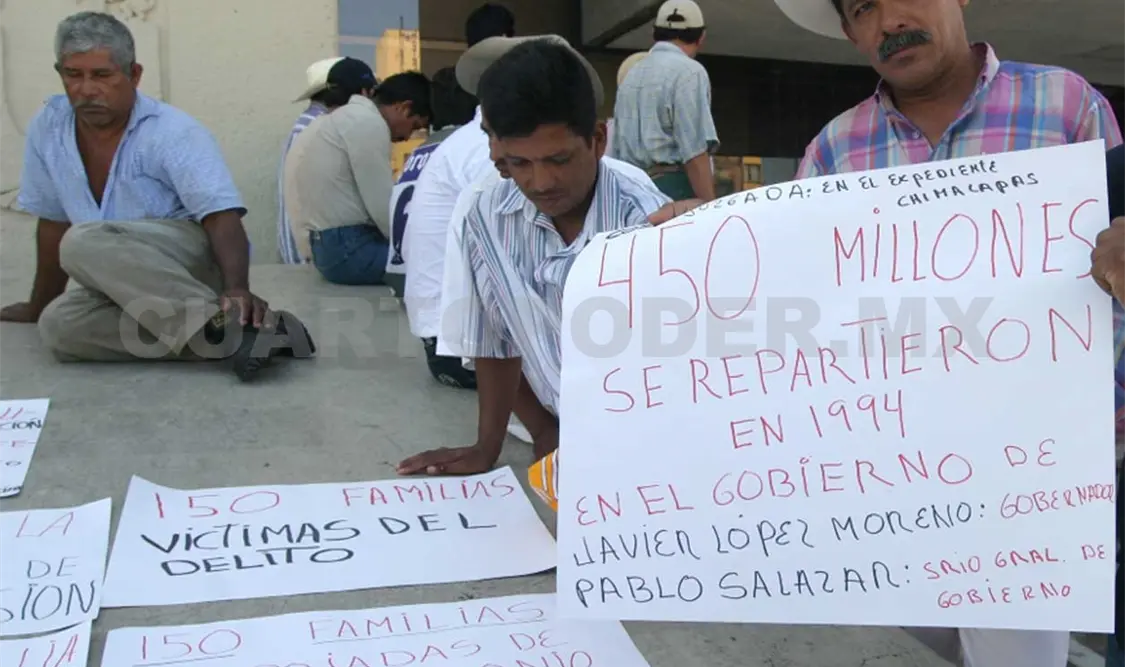 EN EL EXPEDIENTE
CHIMACAPAS
450 MILLONES
SE REPARTIERON
EN 1994
EN EL GOBIERNO DE
JAVIER LÓPEZ MORENO: GOBERNADOR
PABLO SALAZAR: SRIO GRAL. DE
GOBIERNO
150 FAMILIAS
VÍCTIMAS DEL
DELITO
150 FAMILIAS
DE
LA
DE
CUARTOPODER.MX